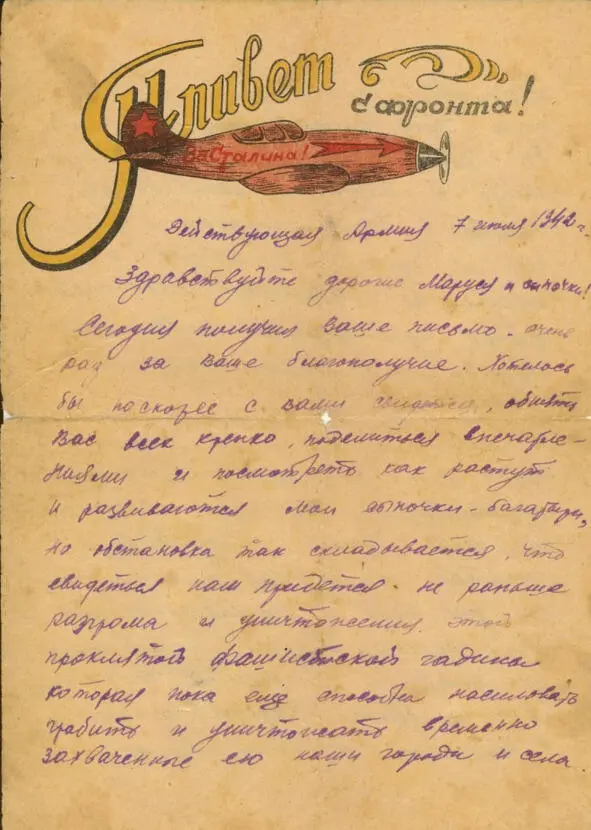 Привет
с фронта!
за Сталина!
Действующая Армия 7 июля 1942 г.
Здравствуйте дорогие Маруся и сыночки!
Сегодня получил Ваше письмо. очень
рад за Ваше благополучие. Хотелось
бы поскорее с вами свидется, обнять
Вас всех крепко, поделиться впечатле-
ниями и посмотреть как растут
и развиваются мои сыночки-багатыри,
но обстановка так складывается, что
свидеться нам придется не раньше
разгрома и уничтожения этой
проклятой фашистской гадины
которая пока еще способна насиловать
грабить и уничтожать временно
захваченные ею наши города и села